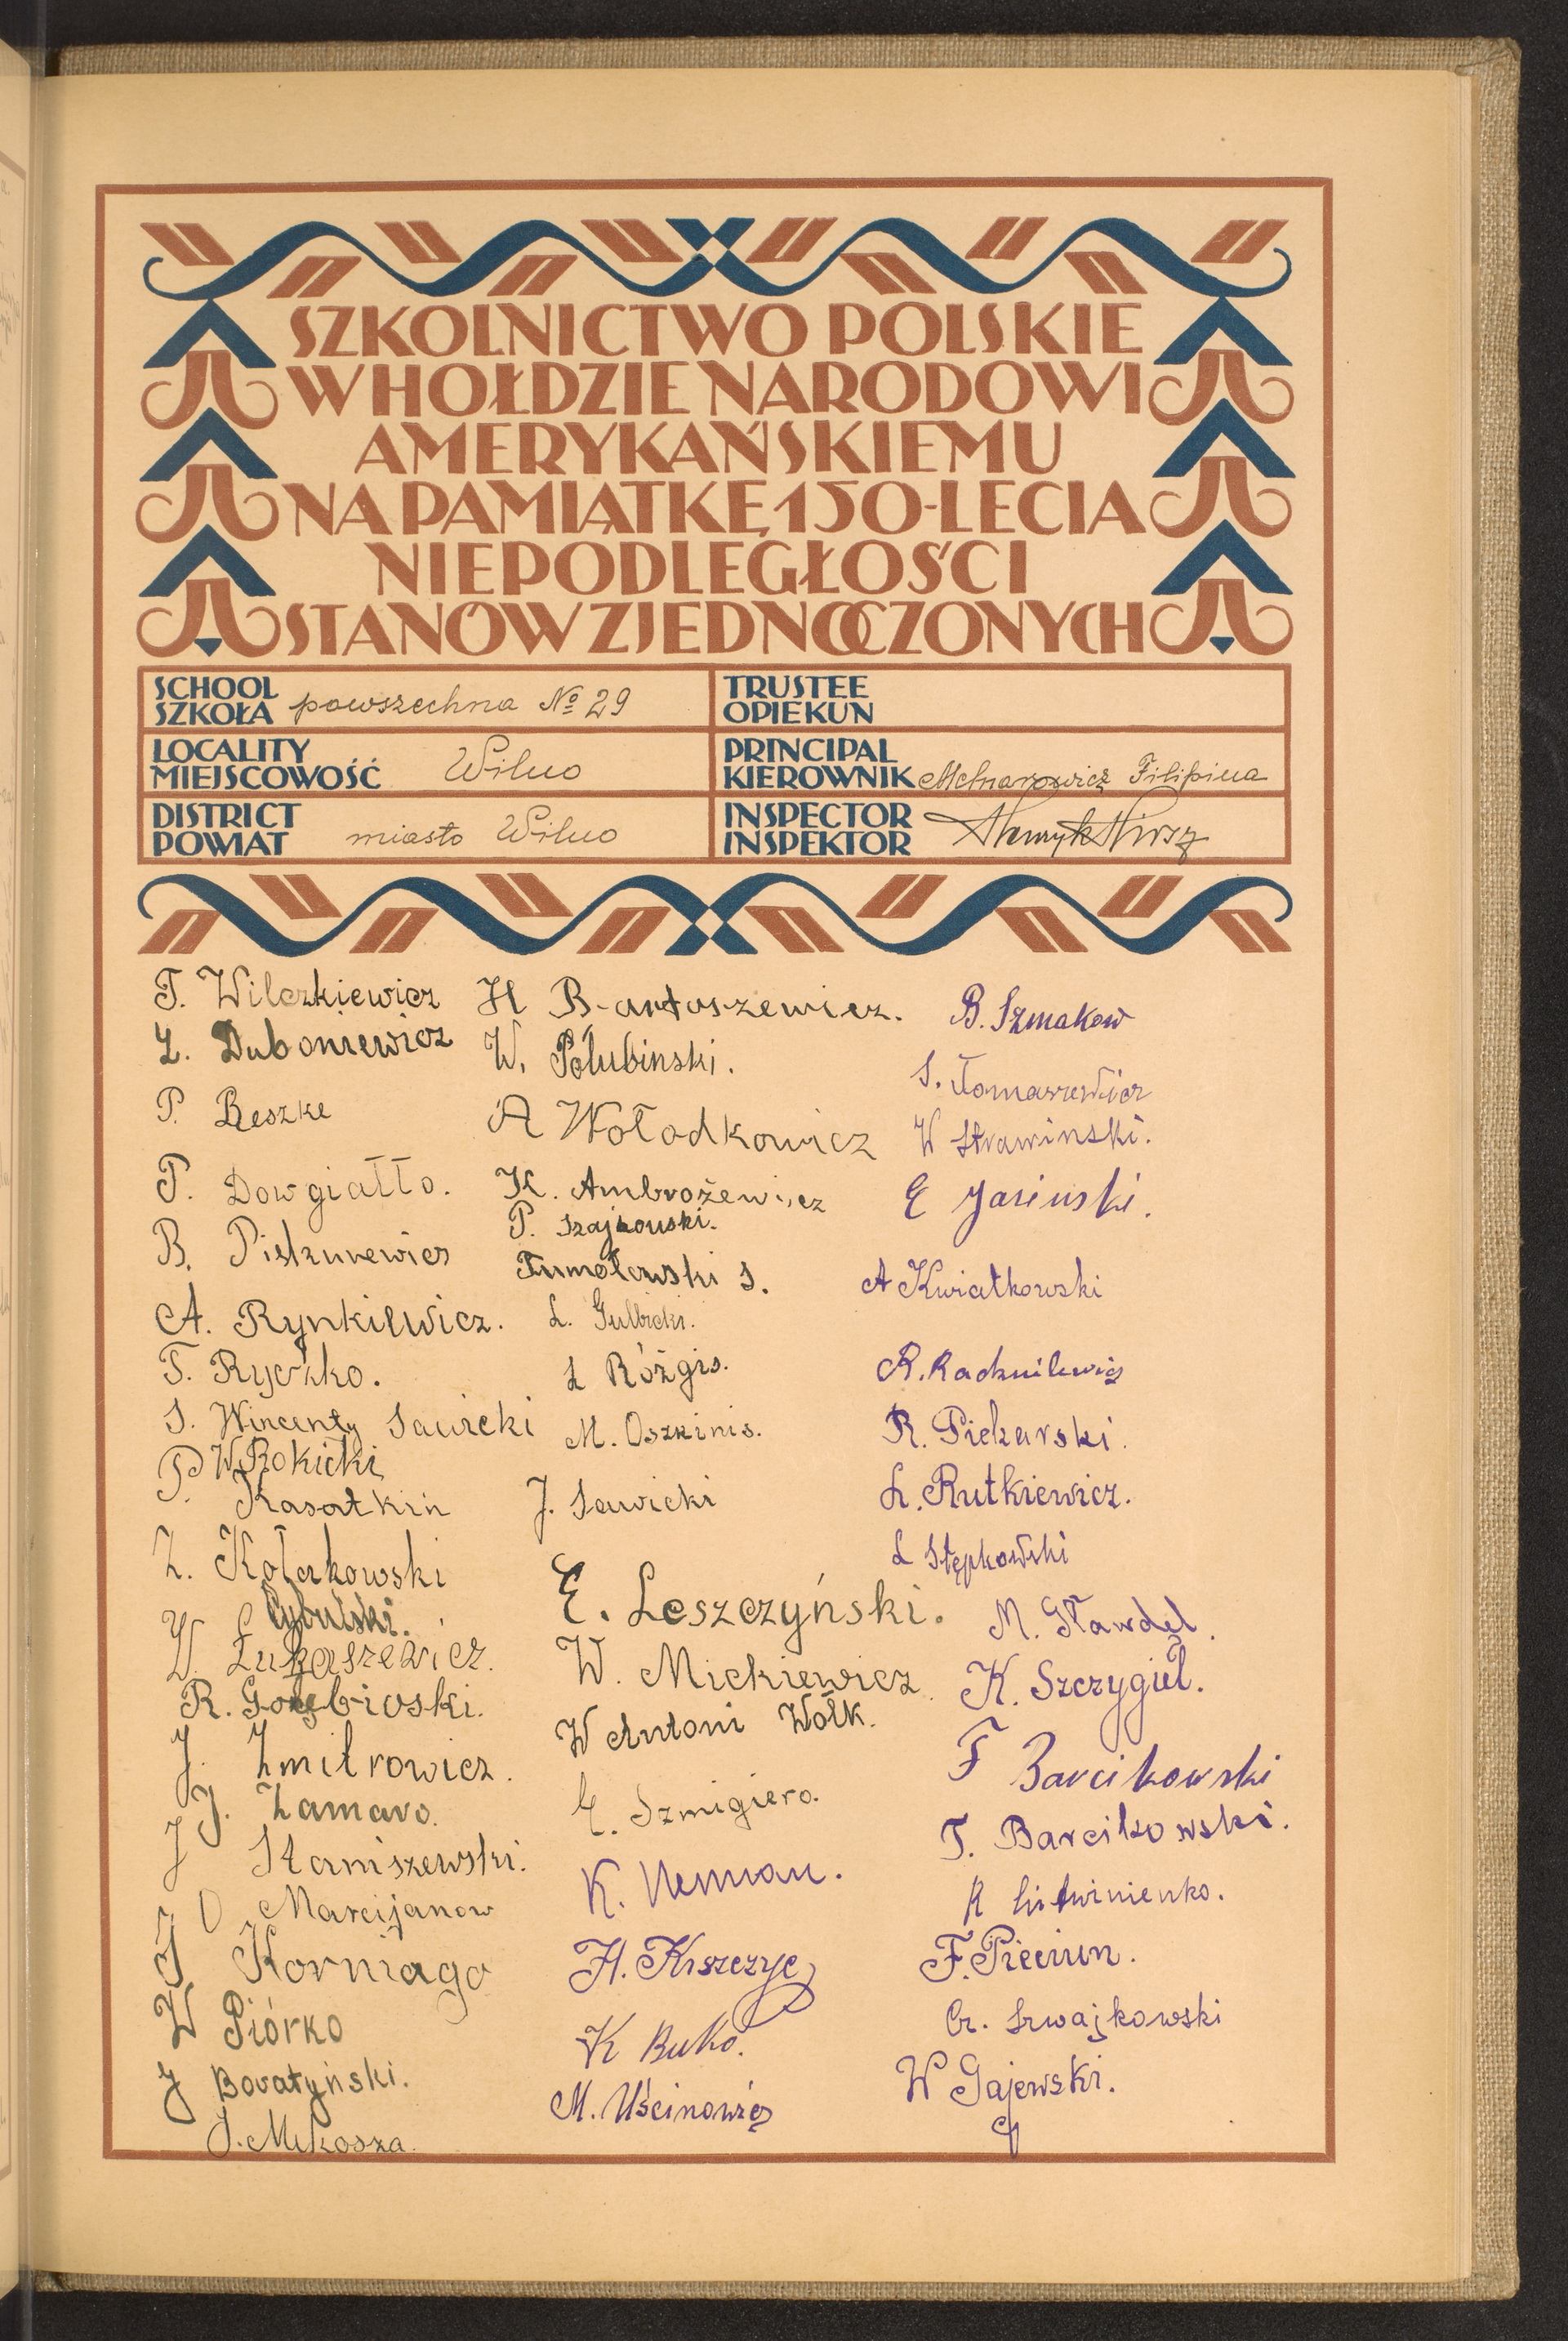 SZKOLNICTWO POLSKIE
W HOŁDZIE NARODOWI
AMERYKAŃSKIEMU
NA PAMIĄTKĘ 150-LECIA
NIEPODLEGŁOŚCI
STANÓW ZJEDNOCZONYCH
SCHOOL
SZKOŁA powszechna № 29
LOCALITY
MIEJSCOWOŚĆ Wilno
DISTRICT
POWIAT miasto Wilno
TRUSTEE
OPIEKUN
PRINCIPAL
KIEROWNIK Filipina
INSPECTOR
INSPEKTOR Henryk
T. Wilczkiewicz
Z. Duboniewicz
P. Reszke
P. Dowgiałło.
B. Pietkurewicz
A. Rynkiewicz.
T. Ryczko.
S. Wincenty Sawicki
W Rokicki
P. Kasatkin
Z. Kołakowski
Cybulski.
W. Łukaszewicz.
R. Gołębioski.
J. Zmitrowicz.
J. Zamaro.
J Staniszewski.
O Marcijanow
J Korniago
W Piórko
J Boratyński.
J. Mikosza.
H Bartoszewicz.
W. Połubinski.
A Wołodkowicz
K. Ambrożewicz
P. Szajkouski.
Tumołowski S.
L. Gulbicki.
L Róžgis.
M. Oszkinis.
J. Sawicki
E. Leszczyński.
W. Mickiewicz
W Antoni Wołk.
E. Szmigiero.
K. Neuman.
H. Krszczyc
K Buko.
M. Uścinowicz
B. Szmakow
S. Tomaszewicz
W Strawinski.
E Jasinski.
A Kwiatkowski
R. Radzuilewicz
R. Piekarski.
L. Rutkiewicz.
L Stępkowski
M. Gławdel.
K. Szczygieł.
F Barcikowski
T. Barcikowski.
R Litwinienko.
F. Pieciun.
Cz. Szwajkowski
W Gajewski.